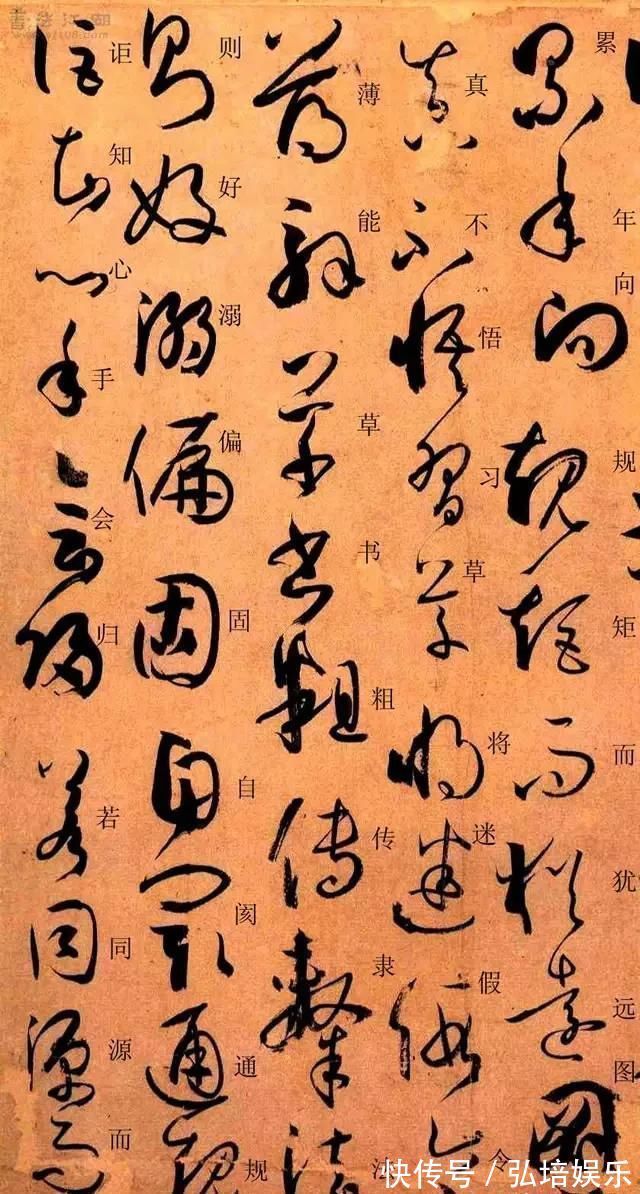 累年向规矩而犹远图
真不悟习草将迷假令
薄能草书粗传隶法
则好溺偏固自阂通规
讵知心手会归若同源而
快传号/弘培娱乐